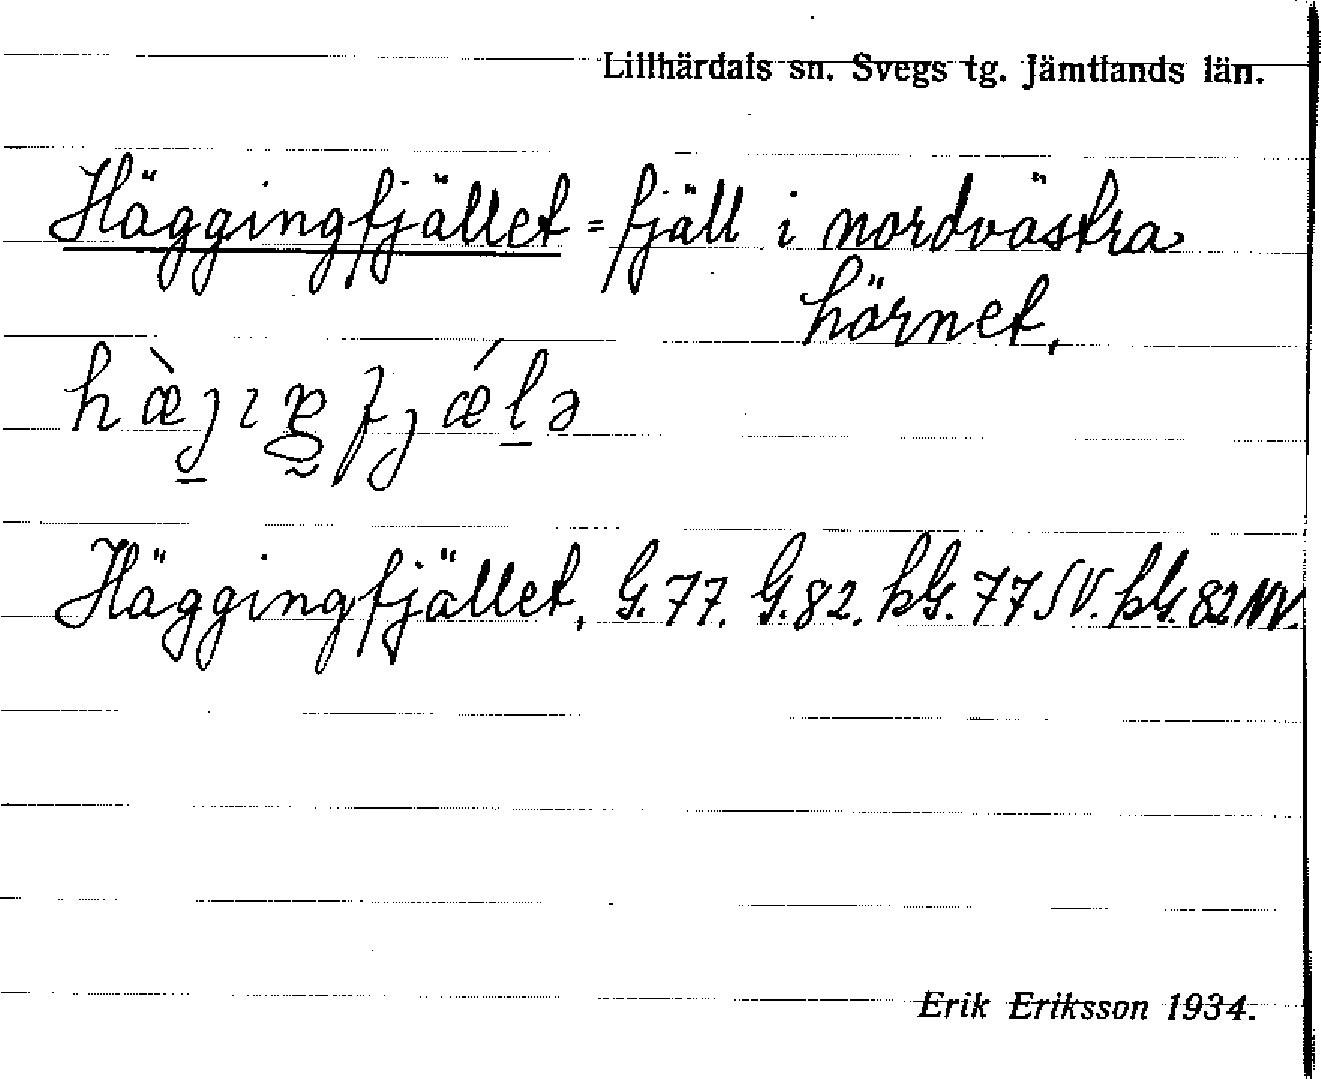 Lillhärdals sn. Svegs tg. Jämtlands län.
Häggingfjället = fjäll i nordvästra
hörnet.
Häggingfjället, G. 77. G. 82. kG. 77 SV. kG. 82 NV.
Erik Eriksson 1934.